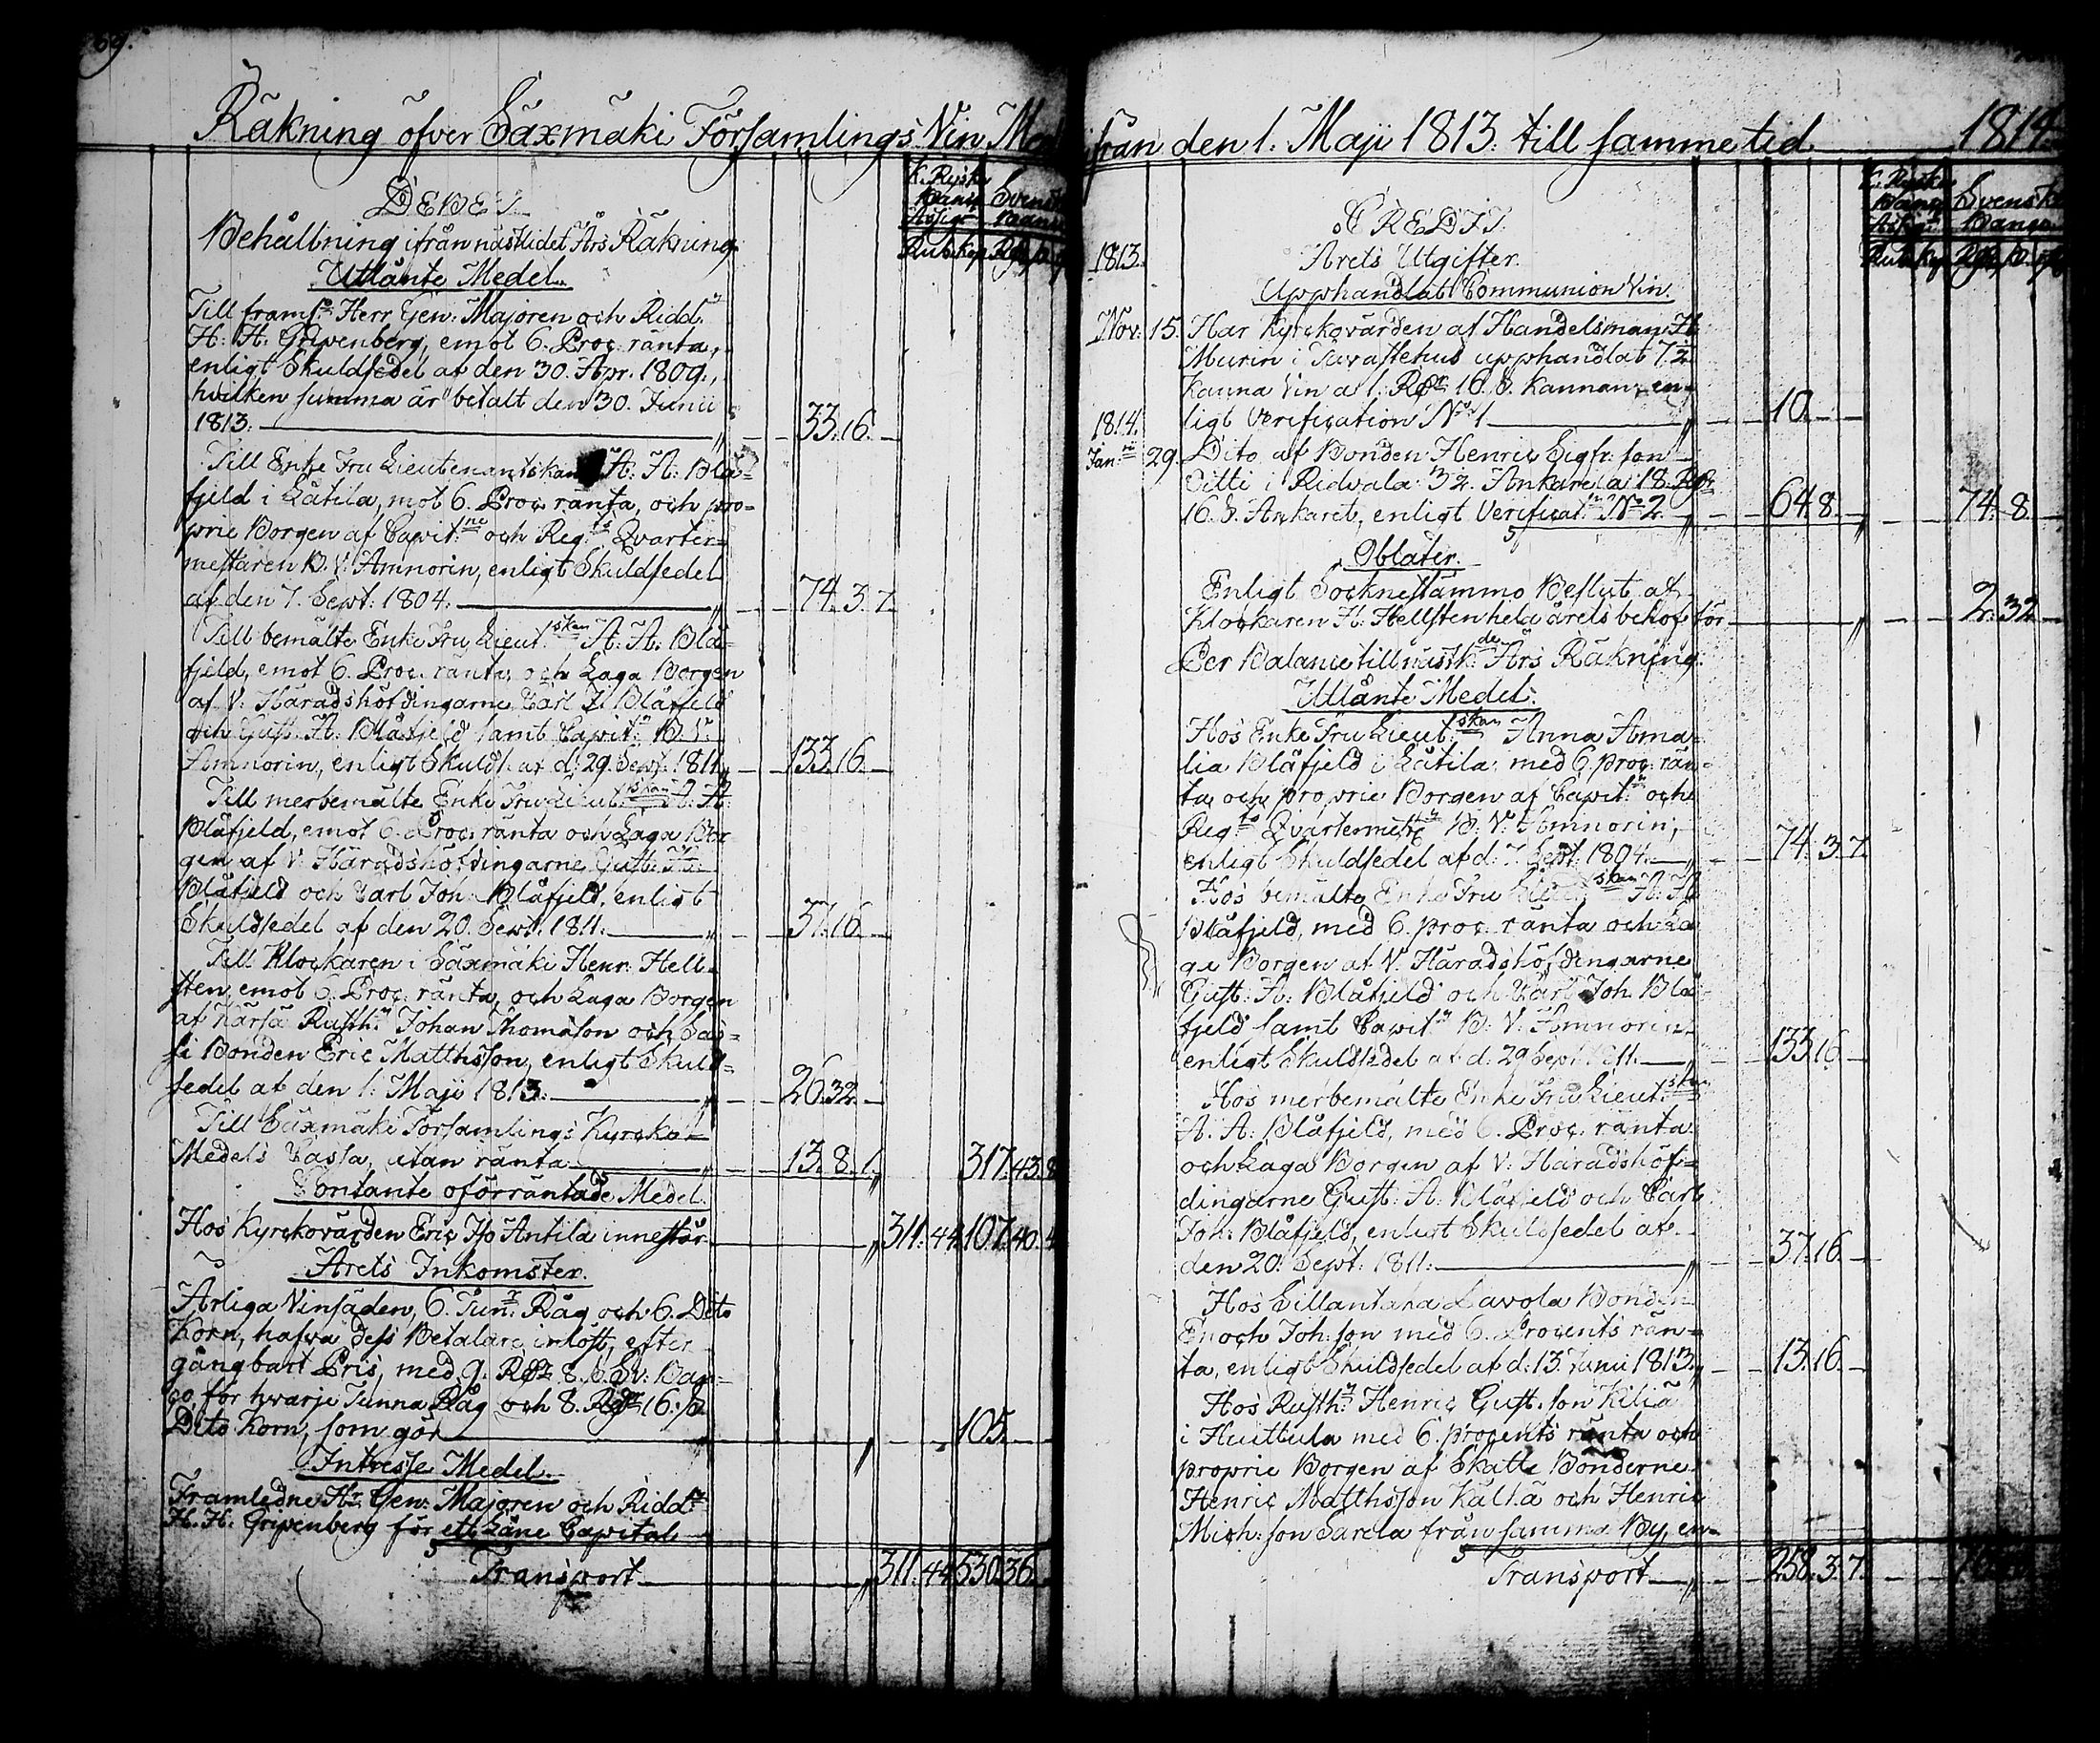 69.
Räkning öfver Säxmäki Församlings Vin Med
DEBET.
K. Rysk.
Banc.
Assig.
Svensk
Banco
Rub. kop. Rdr. ß. rst.
Behållning ifrån nästlidet Års Räkning.
Utlånte Medel.
Till framl.ne Herr Gen: Majoren och Ridd.n
H: H: Gripenberg, emot 6. Proc: ränta,
enligt Skuldsedel af den 30. Apr. 1809.,
hvilken summa är betalt den 30. Junii
1813. 33. 16. —
Till Enke Fru Lieutenantskan A: A: Blå=
fjeld i Låtila, mot 6. Proc. ränta, och pro=
prie Borgen af Capit:ne och Reg:ts Qvarter=
mestaren B. V. Amnorin, enligt Skuldsedel
af den 7. Sept: 1804. 74. 3. 7.
Till bemälte Enke Fru Lieut:skan A: A: Blå=
fjeld, emot 6. Proc. ränta, och Laga Borgen
af V. Häradshöfdingarne Carl J. Blåfjeld
och Gust. A. Blåfjeld samt Capit:n B. V.
Amnorin, enligt Skulds. af d: 29. Sept. 1811. 133. 16. —
Till merbemälte Enke Fru Lieut:skan A: A:
Blåfjeld, emot 6. Proc. ränta och Laga Bor
gen af V. Häradshöfdingarne Gust: A:
Blåfjeld och Carl Joh: Blåfjeld, enligt
Skuldsedel af den 20. Sept. 1811. 37. 16. —
Till Klockaren i Säxmäki Henr: Hell=
sten emot 6. Proc: ränta, och Laga Borgen
af Rusth:n Johan Thomason och
Bonden Eric Matthsson, enligt Skuld=
sedel af den 1. Maji 1813. 26. 32. —
Till Säxmäki Församlings Kyrcko=
Medels Cassa, utan ränta 13. 8. 1. 317. 43. 8
Contante oförräntade Medel.
Hos Kyrckovärden Eric Antila innestår 311. 44. 107. 40. 4
Årets Inkomster.
Årliga Vinsäden, 6. Tun:r Råg och 6. Dito
Korn, hafva dess Betalare inlöst, efter
gångbart Pris, med 9. Rdr 8. ß. Sv: Ban=
co, för hvarje Tunna Råg och 8. Rdr 16. ß.
Dito Korn, som gör 105. —
Intresse Medel.
Framledne Hr. Gen: Majoren och Ridd:n
H. H. Gripenberg för ett Låne Capital
Transport 311. 44. 530. 36.
ifrån den 1. Maji 1813. till samme tid 1814.
CREDIT.
K. Ryska
Banc.
Assig.
Svenske
Banco
Rub. kop. Rdr. ß. rst.
1813. Årets Utgifter.
Upphandlat Communion Vin.
Nov: 15. Har Kyrckovärden af Handelsman H
Murin i Tavastehus upphandlat 7½
Kanna Vin a 1. Rdr 16. ß. Kannan, en=
ligt Verification No 1 10. — —
1814.
Jan:rii 29. Dito af Bonden Henric Sigfr: son
Oitti i Ridvala 3½. Ankare a 18. Rdr
16. ß. Ankaret, enligt Verificat:n No 2 64. 8. — 74. 8. —
Oblater.
Enligt Sockne stämmo Beslut af
Klockaren H. Hellsten hela årets behof för 2. 32 —
Per Balance till nästk:de Års Räkning.
Utlånte Medel.
Hos Enke Fru Lieut:skan Anna Ama=
lia Blåfjeld i Låtila, med 6. proc: rän=
ta och proprie Borgen af Capit:n och
Reg:ts Qvartermest:n B. V. Amnorin,
enligt Skuldsedel af d: 7. Sept: 1804. 74. 3. 7.
Hos bemälte Enke Fru Lieut:skan A: A:
Blåfjeld, med 6. proc. ränta och La
ga Borgen af V. Häradshöfdingarne
Gust: A: Blåfjeld och Carl Joh. Blå=
fjeld samt Capit:n B: V: Amnorin
enligt Skuldsedel af d: 29 Sept 1811. 133. 16. —
Hos merbemälte Enke Fru Lieut:skan
A. A: Blåfjeld, med 6. Proc. ränta
och Laga Borgen af V: Häradshöf=
dingarne Gust: A: Blåfjeld och Carl
Joh: Blåfjeld, enligt Skuldsedel af
den 20. Sept: 1811. 37. 16. —
Hos Lavola Bonden
Enoch Joh: son med 6. Procents rän=
ta, enligt Skuldsedel af d: 13. Junii 1813. 13. 16. —
Hos Rusth:n Henric Gust. son Kiliä
i Huittula med 6. procents ränta och
proprie Borgen af Skatte Bönderne
Henric Matthsson Källä och Henric
Mich: son Sarela från samma By, en=
Transport 258. 3. 7.